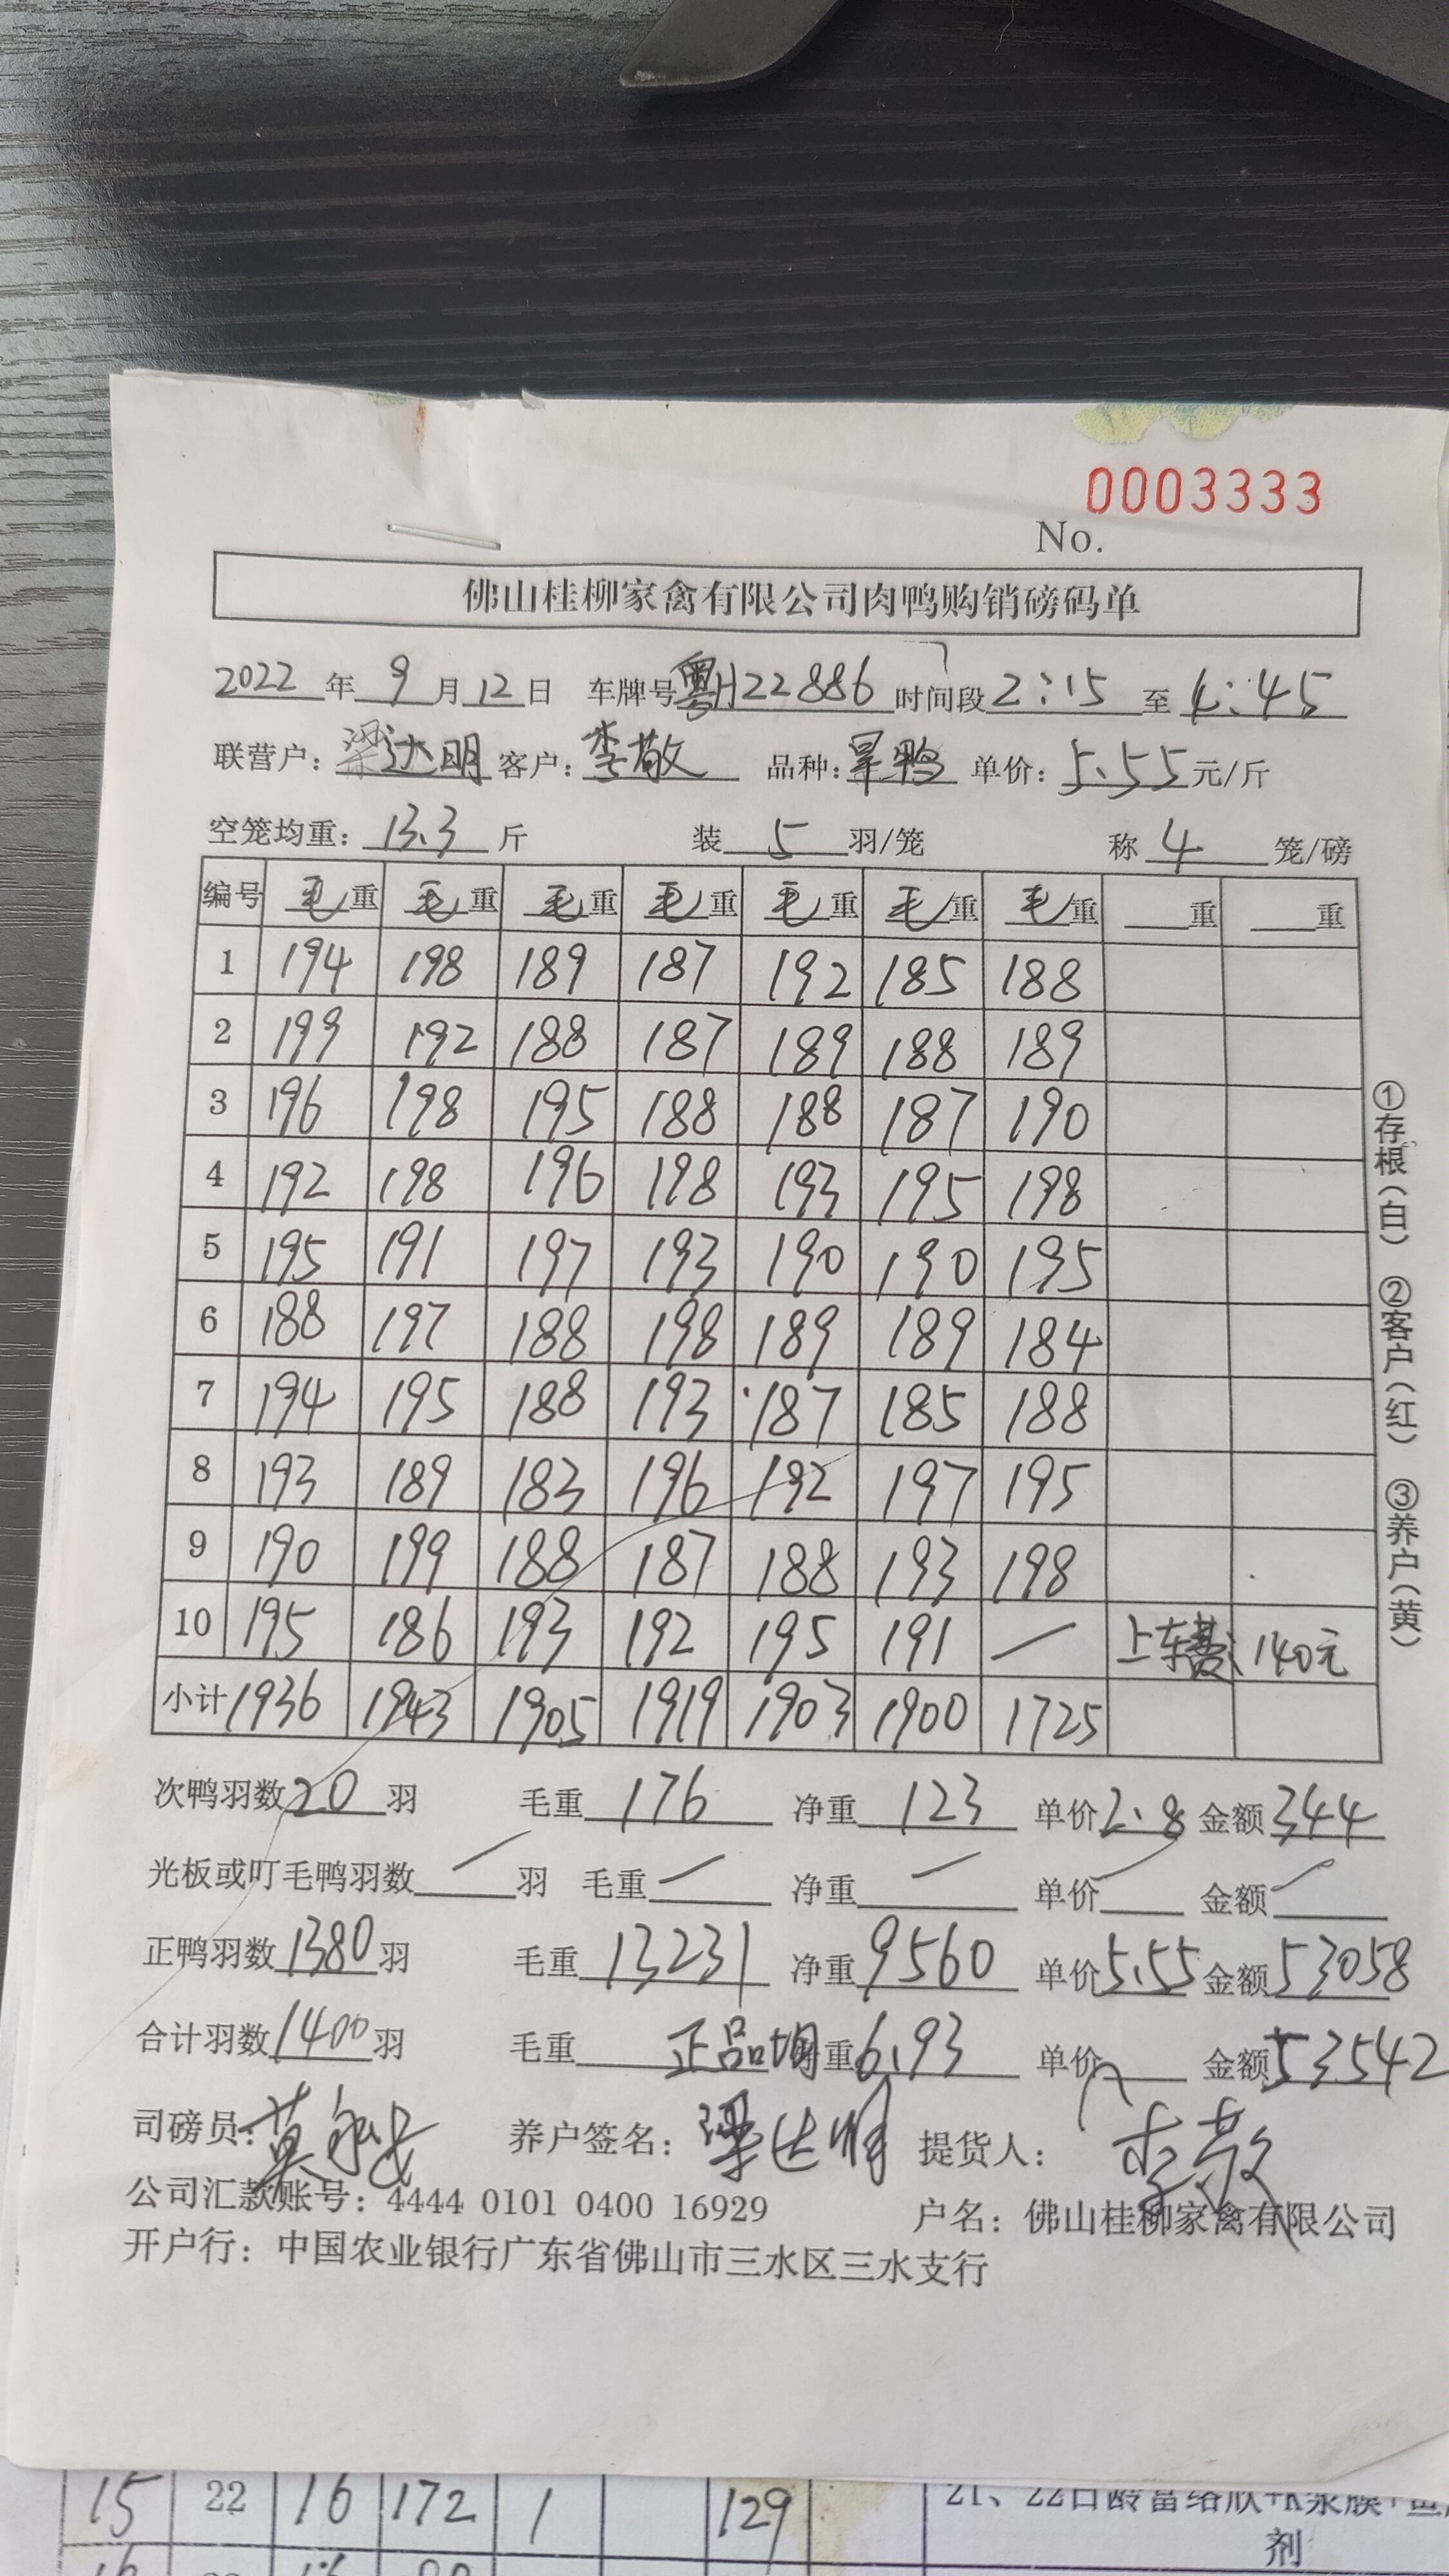 0003333
No.
佛山桂柳家禽有限公司肉鸭购销磅码单
2022 年 9 月 12 日 车牌号 粤H22886 时间段 2:15 至 4:45
联营户: 梁达明 客户: 李敬 品种: 旱鸭 单价: 5.55 元/斤
空笼均重: 13.3 斤 装 5 羽/笼 称 4 笼/磅
编号 毛重 毛重 毛重 毛重 毛重 毛重 毛重 重 重
1 194 198 189 187 192 185 188
2 199 192 188 187 189 188 189
3 196 198 195 188 188 187 190
4 192 198 196 198 193 195 198
5 195 191 197 193 190 190 195
6 188 197 188 198 189 189 184
7 194 195 188 193 187 185 188
8 193 189 183 196 192 197 195
9 190 199 188 187 188 193 198
10 195 186 193 192 195 191 — 上车费: 140元
小计 1936 1943 1905 1919 1903 1900 1725
①存根(白) ②客户(红) ③养户(黄)
次鸭羽数 20 羽 毛重 176 净重 123 单价 2.8 金额 344
光板或叮毛鸭羽数 羽 毛重 净重 单价 金额
正鸭羽数 1380 羽 毛重 13231 净重 9560 单价 5.55 金额 53058
合计羽数 1400 羽 毛重 正品均重 6.93 单价 金额 53542
司磅员: 养户签名: 梁达明 提货人: 李敬
公司汇款账号: 4444 0101 0400 16929 户名: 佛山桂柳家禽有限公司
开户行: 中国农业银行广东省佛山市三水区三水支行
15 22 16 172 1 129
剂